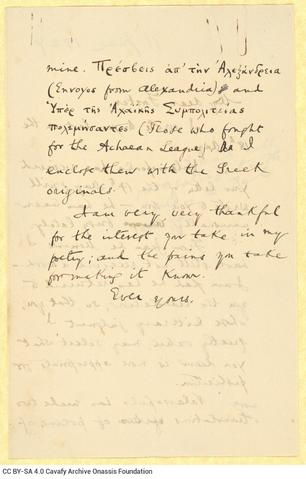 mine. Πρέσβεις ἀπ' τὴν Ἀλεξάνδρεια
(Envoys from Alexandria), and
Ὑπὲρ τῆς Ἀχαϊκῆς Συμπολιτείας
πολεμήσαντες (Those who fought
for the Achaean League). I
enclose them with the Greek
originals.
I am very, very thankful
for the interest you take in my
poetry; and the pains you take
for making it known.
Ever yours.
CC BY-SA 4.0 Cavafy Archive Onassis Foundation